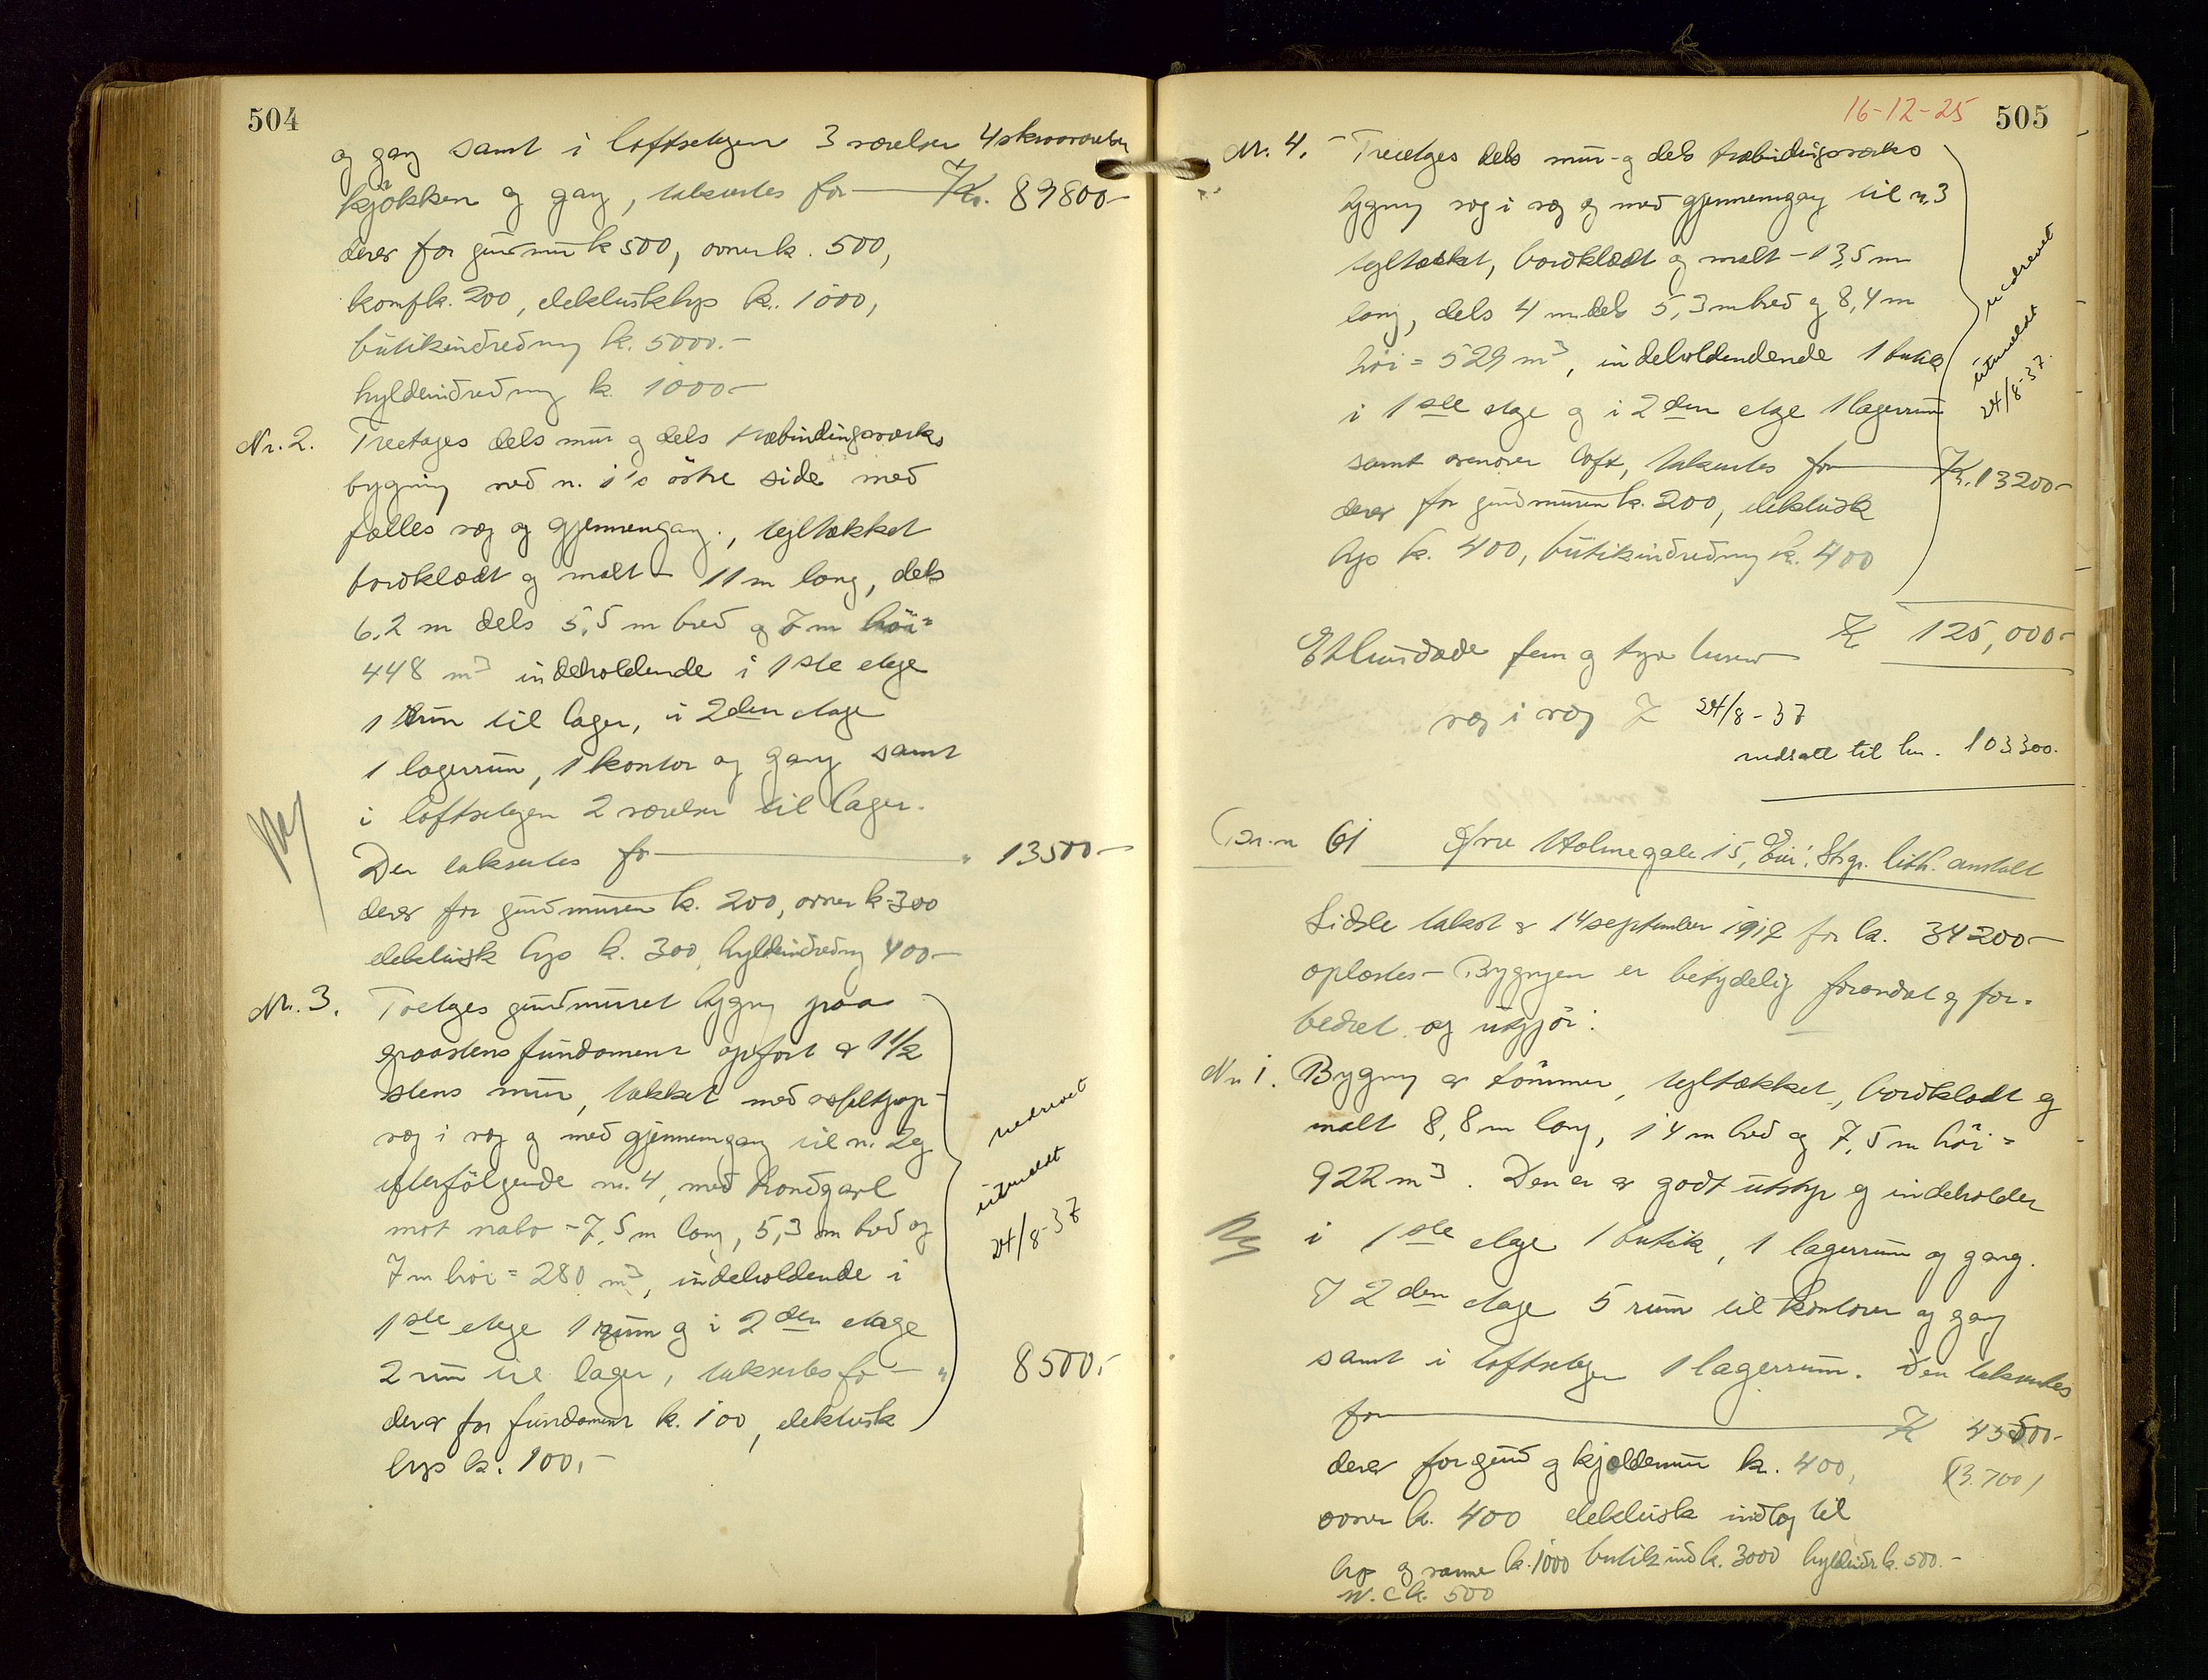 504
og gang samt i loftsetagen 3 værelser 4 skraaværelser
kjøkken og gang, takseres for — Kr. 89800-
derav for grundmur k 500, ovner k. 500,
komf k. 200, elektrisk lys k. 1000,
butikindredning k. 5000.-
hyldeindredning k. 1000-
Nr. 2. Treetages dels mur og dels træbindingsverks
bygning ved n. 1's östre side med
fælles væg og gjennemgang, tegltækket
bordklædt og malt - 11 m lang, dels
6,2 m dels 5,5 m bred og 7 m höi =
448 m³ indeholdende i 1ste etage
1 rum til lager, i 2den etage
1 lagerrum, 1 kontor og gang samt
i loftsetagen 2 værelser til lager.
Den takseres for — " 13500-
derav for grundmuren k. 200, ovner k 300
elektrisk lys k. 300, hyldeindredning 400-
Nr. 3. Toetages grundmuret bygning paa
graastens fundament opført av 1 1/2
stens mur, tækket med asfaltpap -
væg i væg og med gjennemgang til n. 2 og
efterfölgende nr. 4, med brandgavl
mot nabo - 7,5 m lang, 5,3 m bred og
7 m höi = 280 m³, indeholdende i
1ste etage 1 rum og i 2den etage
2 rum til lager, takseres for — " 8500.-
derav for fundament k. 100, elektrisk
lys k. 100.-
nedrevet
utmeldt
24/8-37
Ny
16-12-25 505
Nr. 4. - Treetages dels mur- og dels træbindingsverks
bygning væg i væg og med gjennemgang til n. 3
tegltækket, bordklædt og malt - 13,5 m
lang, dels 4 m dels 5,3 m bred og 8,4 m
höi = 529 m³, indeholdendende 1 butik
i 1ste etage og i 2den etage 1 lagerrum
samt ovenover loft, takseres for — Kr. 13200-
derav for grundmuren k. 200, elektrisk
lys k. 400, butikindredning k. 400
nedrevet
utmeldt
24/8-37.
Kr 125,000-
Ethundrede fem og tyve tusen
væg i væg 24/8-37
nedsatt til kr. 103300.
Br.n 61 Øvre Holmegate 15, Eier: Stvgr. lith. anstalt
Sidste takst av 14 september 1917 for k. 34200-
oplæstes - Bygningen er betydelig forandret og for-
bedret og utgjör:
Nr 1. Bygning av tömmer, tegltækket, bordklædt og
malt 8,8 m lang, 14 m bred og 7,5 m höi =
922 m³. Den er av godt utstyr og indeholder
i 1ste etage 1 butik, 1 lagerrum og gang.
I 2den etage 5 rum til kontorer og gang
samt i loftsetagen 1 lagerrum. Den takseres
for — Kr 43500-
derav for grund og kjældermur k. 400, (3.700)
ovner k. 400 elektrisk indlæg til
lys og varme k. 1000 butikind k. 3000 hyldeindr k. 500.-
W.C k. 500
Ny